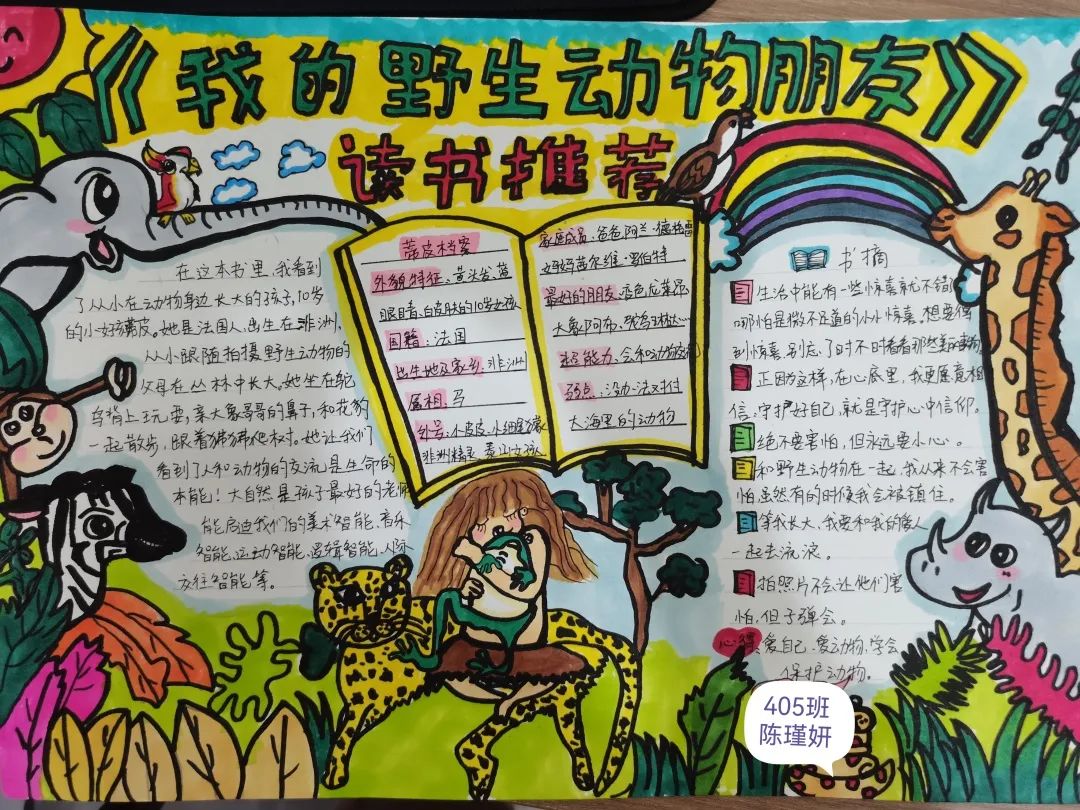 《我的野生动物朋友》
读书推荐
在这本书里,我看到
了从小在动物身边长大的孩子,10岁
的小女孩蒂皮。她是法国人,出生在非洲,
从小跟随拍摄野生动物的
父母在丛林中长大。她坐在鸵
鸟背上玩耍,亲大象哥哥的鼻子,和花豹
一起散步,跟着狒狒爬树。她让我们
看到了人和动物的交流是生命的
本能!大自然是孩子最好的老师
能启迪我们的美术智能、音乐
智能、运动智能、逻辑智能、人际
交往智能等。
蒂皮档案
外貌特征:黄头发、蓝
眼睛、白皮肤的10岁女孩
国籍:法国
出生地及家乡:非洲
属相:马
外号:小皮皮、小细尾獴
非洲精灵 泰山女孩
家庭成员:爸爸阿兰·德格雷
妈妈茜尔维·罗伯特
最好的朋友:变色龙莱昂
大象阿布、
超能力:会和动物交流
弱点:没办法对付
大海里的动物
书摘
生活中能有一些惊喜就不错
哪怕是微不足道的小小惊喜。想要得
到惊喜,别忘了时不时看看那些新事物
正因为这样,在心底里,我更愿意相
信:守护好自己,就是守护心中信仰。
绝不要害怕,但永远要小心。
和野生动物在一起,我从来不会害
怕虽然有的时候我会被镇住。
等我长大,我要和我的候人
一起去流浪。
拍照片不会让他们害
怕,但子弹会。
心得:爱自己,爱动物,学会
保护动物。
405班
陈瑾妍